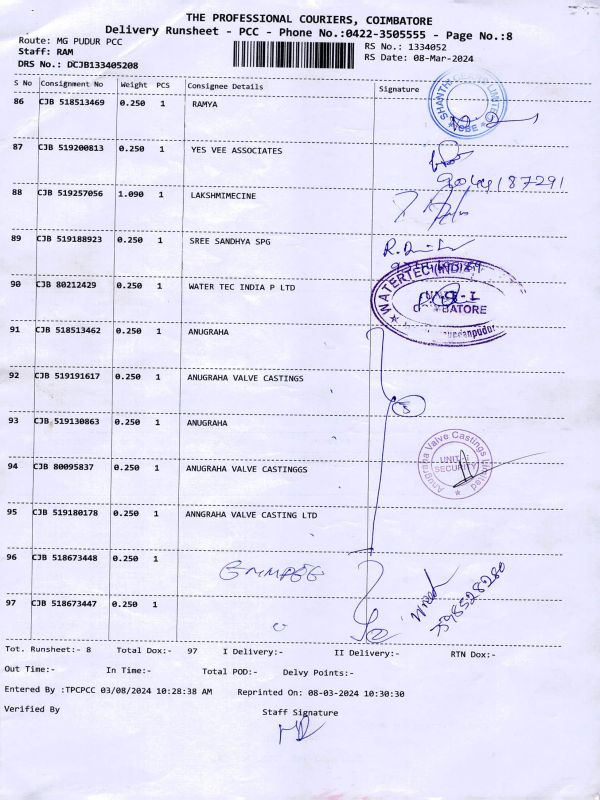 THE PROFESSIONAL COURIERS, COIMBATORE
Delivery Runsheet - PCC - Phone No.:0422-3505555 - Page No.:8
Route: MG PUDUR PCC
RS No.: 1334052
Staff: RAM
RS Date: 08-Mar-2024
DRS No.: DCJB133405208
S No Consignment No Weight PCS Consignee Details Signature
86 CJB 518513469 0.250 1 RAMYA
87 CJB 519200813 0.250 1 YES VEE ASSOCIATES
88 CJB 519257056 1.090 1 LAKSHMIMECINE
89 CJB 519188923 0.250 1 SREE SANDHYA SPG
90 CJB 80212429 0.250 1 WATER TEC INDIA P LTD
WATERTEC (INDIA)
UNIT - I
COIMBATORE
91 CJB 518513462 0.250 1 ANUGRAHA
92 CJB 519191617 0.250 1 ANUGRAHA VALVE CASTINGS
5
93 CJB 519130863 0.250 1 ANUGRAHA
94 CJB 80095837 0.250 1 ANUGRAHA VALVE CASTINGGS
Anugraha Valve Castings Limited
SECURITY
95 CJB 519180178 0.250 1 ANNGRAHA VALVE CASTING LTD
96 CJB 518673448 0.250 1
97 CJB 518673447 0.250 1
7598528280
Tot. Runsheet:- 8 Total Dox:- 97 I Delivery:- II Delivery:- RTN Dox:-
Out Time:- In Time:- Total POD:- Delvy Points:-
Entered By :TPCPCC 03/08/2024 10:28:38 AM Reprinted On: 08-03-2024 10:30:30
Verified By Staff Signature